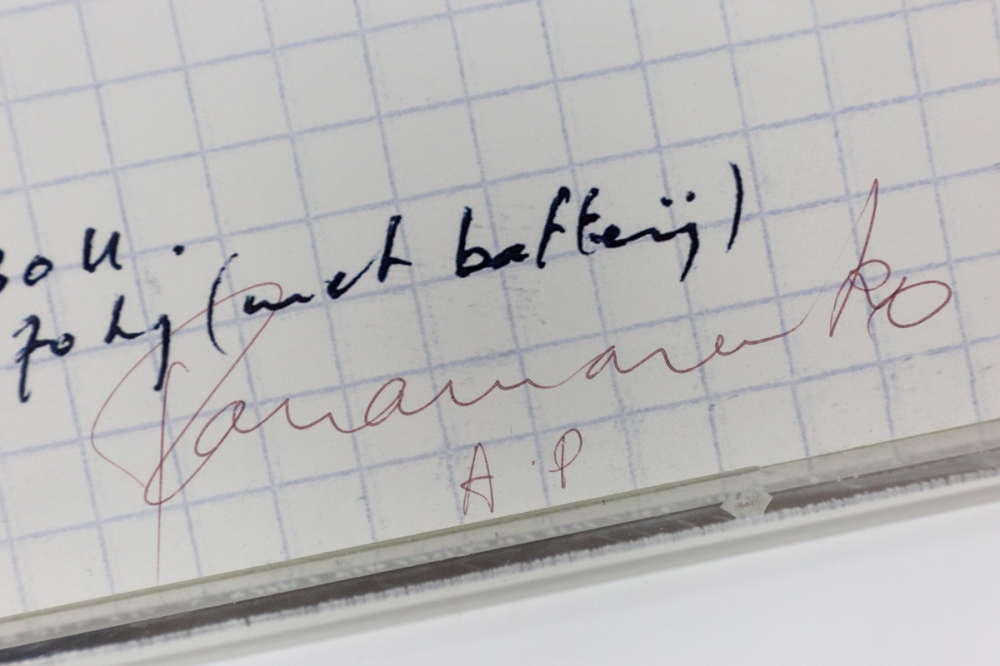 30 U.
70 kg (met batterij)
Panamarenko
A.P